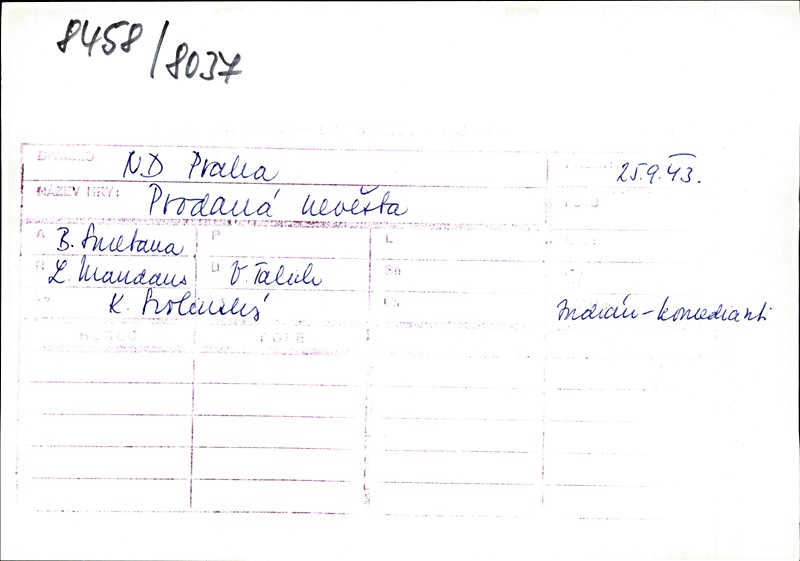 8458/8037
DIVADLO ND Praha 25.9.43.
NÁZEV HRY: Prodaná nevěsta
A B. Smetana P L
R L. Mandaus D V. Talich Sb
K. Svolinský Indián - komedianti
HEREC ROLE